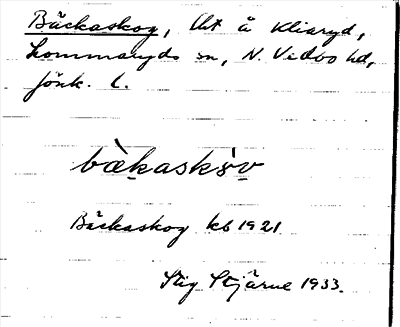 Bäckaskog, lht å Kliaryd,
Lommaryds sn, N. Vedbo hd,
Jönk. l.
bækaskòv
Bäckaskog kb 1921
Stig Stjärne 1933.